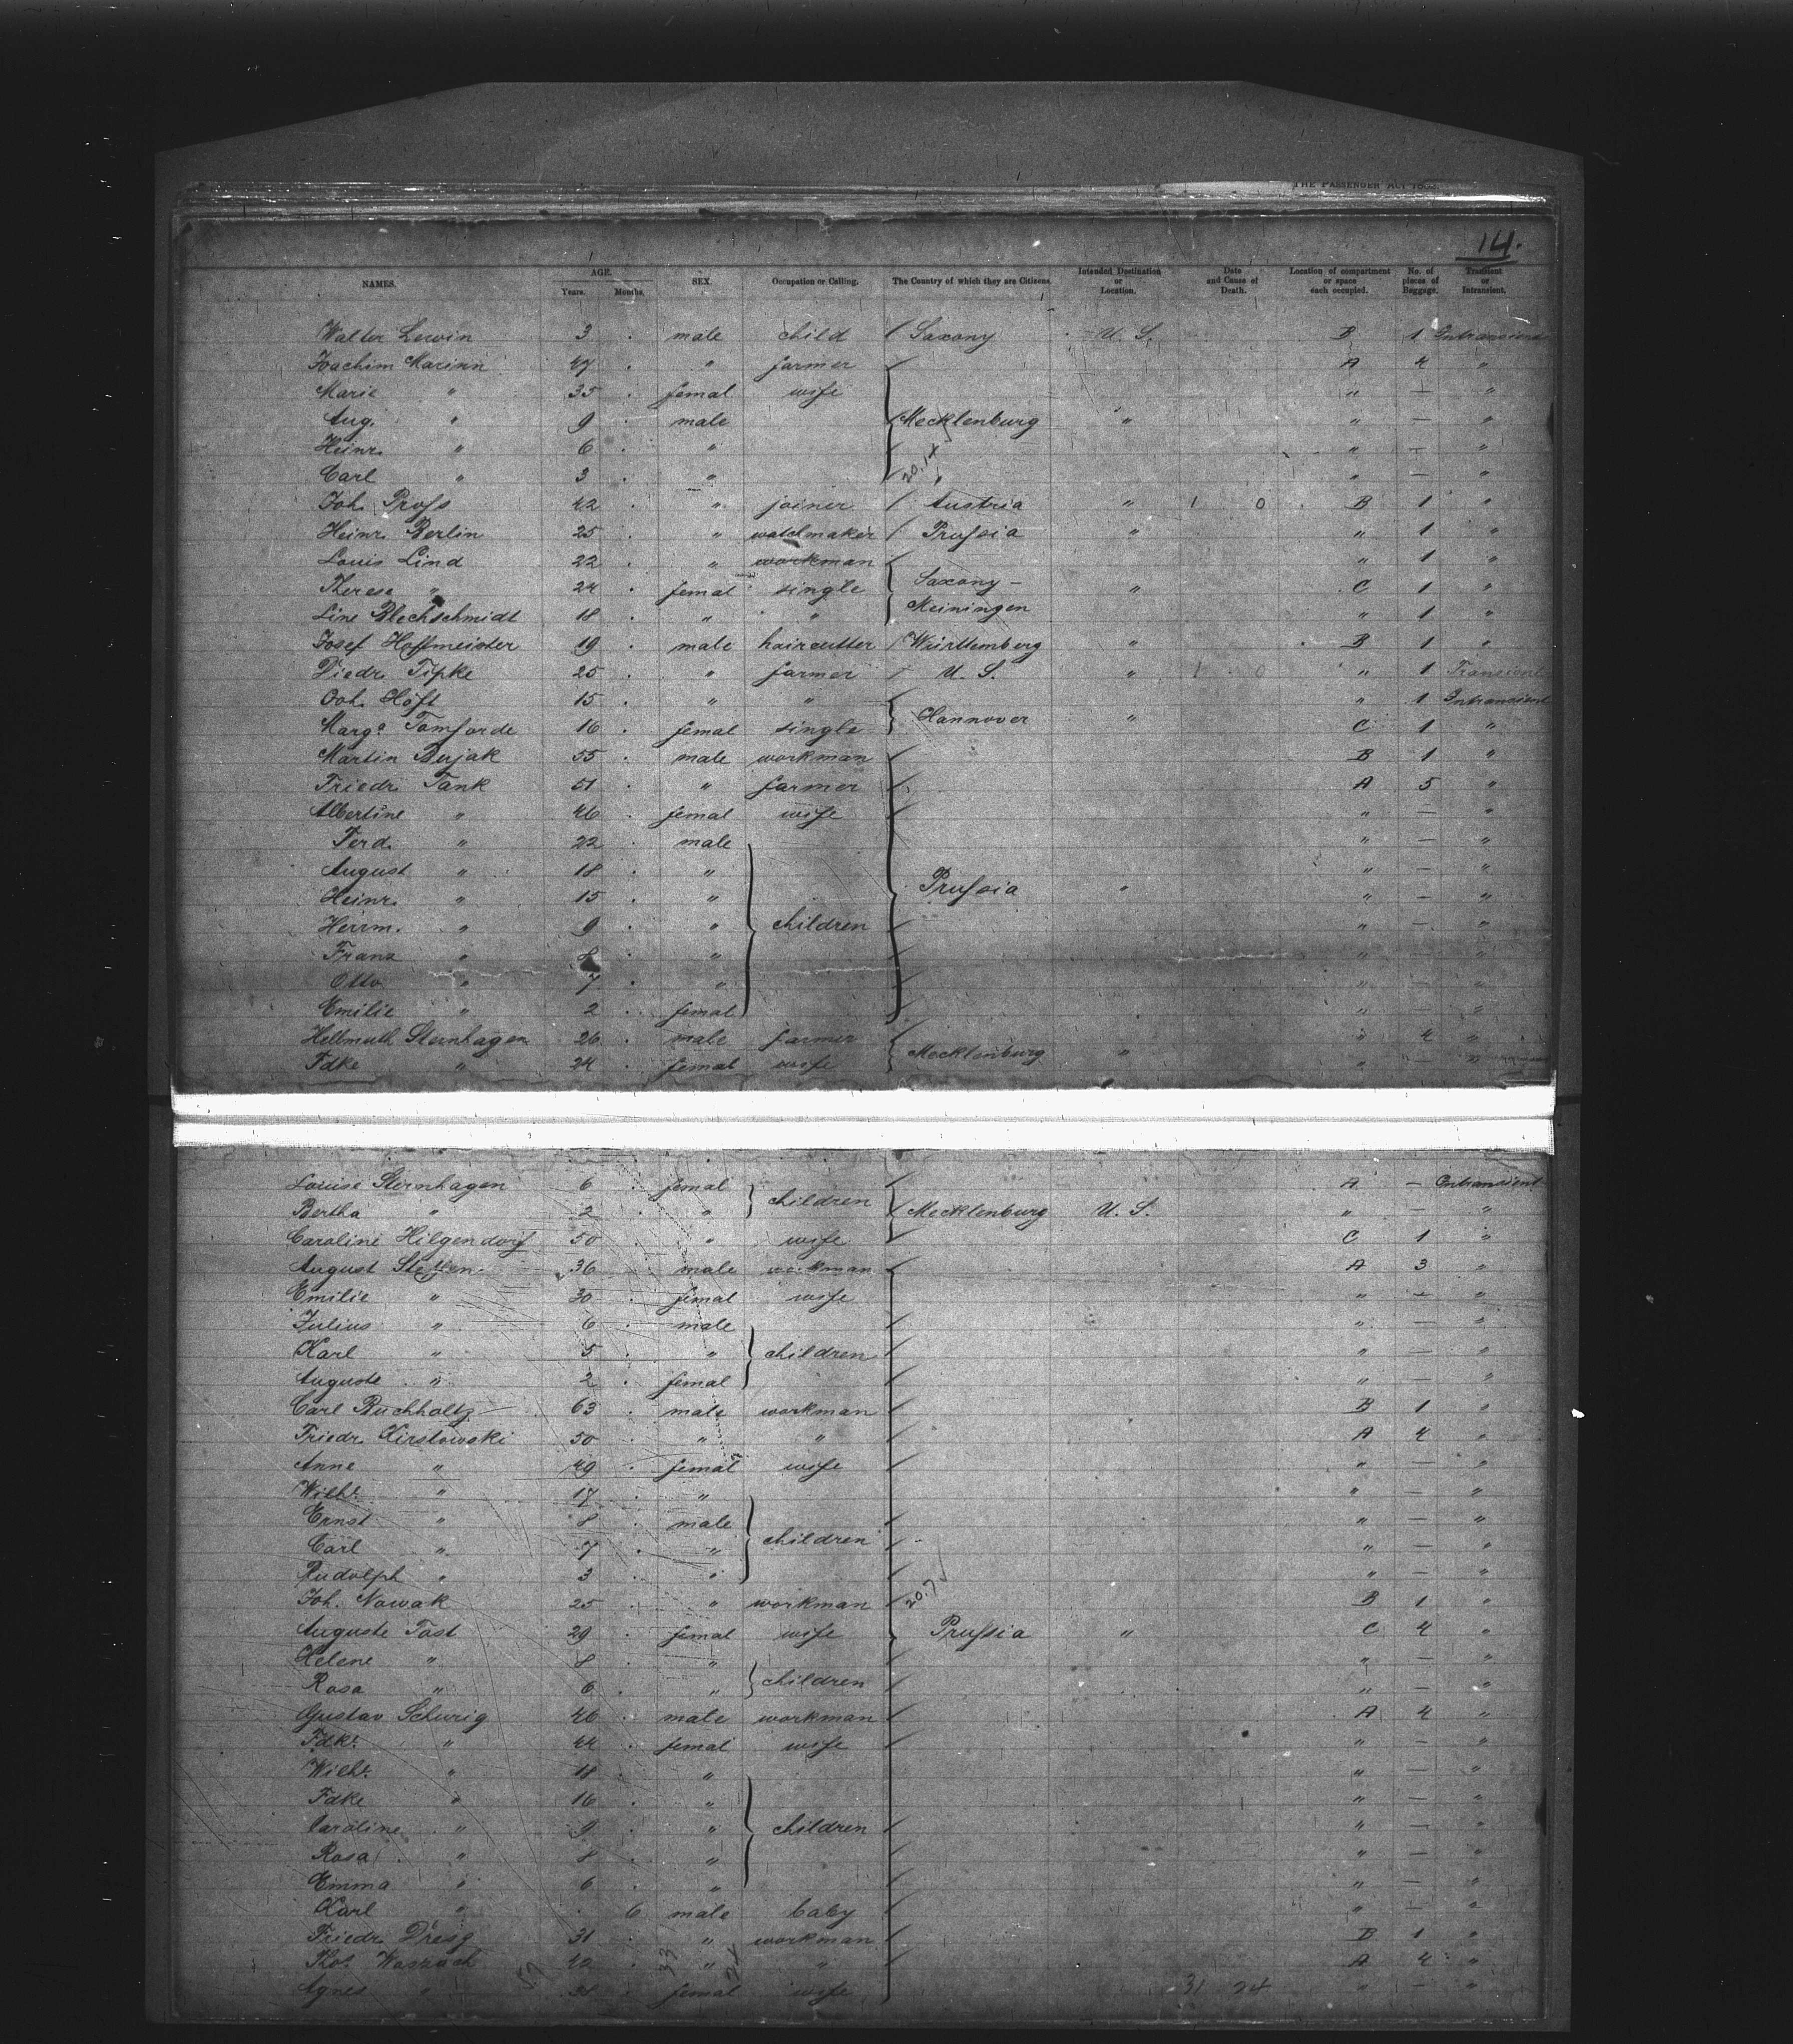 THE PASSENGER ACT 188
14.
NAMES. AGE. Years. Months. SEX. Occupation or Calling. The Country of which they are Citizens. Intended Destination or Location. Date and Cause of Death. Location of compartment or space each occupied. No. of pieces of Baggage. Transient or Intransient.
Walter Lewin 3 . male child / Saxony = U. S. B 1 Intransient
Joachim Marinn 47 . " farmer A 4 "
Marie " 35 . femal wife " — "
Aug. " 9 . male Mecklenburg " " — "
Heinr. " 6 . " " — "
Carl " 3 . " 20.14 " — "
Joh. Profs 42 . " joiner / Austria " 1 0 B 1 "
Heinr. Berlin 25 . " watchmaker / Prufsia " " 1 "
Louis Lind 22 . " workman " 1 "
Therese " 24 . femal single Saxony – " C 1 "
Line Blechschmidt 18 . " " Meiningen " 1 "
Josef Hoffmeister 19 . male haircutter / Württemberg " B 1 "
Diedr. Tipke 25 . " farmer / U. S. " 1 0 " 1 Transient
Joh. Höft 15 . " " " 1 Intransient
Marg. Tomforde 16 . femal single Hannover " C 1 "
Martin Bujak 55 . male workman B 1 "
Friedr. Tank 51 . " farmer A 5 "
Albertine " 46 . femal wife " — "
Ferd. " 22 . male " — "
August " 18 . " " — "
Heinr. " 15 . " Prufsia " " — "
Herrm. " 9 . " children " — "
Franz " 8 . " " — "
Otto " 7 . " " — "
Emilie " 2 . femal " — "
Hellmuth Sternhagen 26 . male farmer " 4 "
Fdke " 24 . femal wife Mecklenburg " " — "
Louise Sternhagen 6 . femal A — Intransient
Bertha " 2 . " children Mecklenburg U. S. " — "
Caroline Hilgendorf 50 . " wife C 1 "
August 36 . male workman A 3 "
Emilie " 30 . femal wife " — "
Julius " 6 . male " — "
Karl " 5 . " children " — "
Auguste " 2 . femal " — "
Carl Buchholtz 63 . male workman B 1 "
Friedr. Kirstowski 50 . " " A 4 "
Anne " 49 . femal wife " — "
Wilh. " 17 . " " — "
Ernst " 8 . male " — "
Carl " 7 . " children " — "
Rudolph " 3 . " " — "
Joh. Nowak 25 . " workman 20.7 B 1 "
Auguste Tast 29 . femal wife Prufsia " C 4 "
Helene " 8 . " " — "
Rosa " 6 . " children " — "
Gustav Schurig 46 . male workman A 4 "
Fdk. " 44 . femal wife " — "
Wilh. " 18 . " " — "
Fdke " 16 . " " — "
Caroline " 9 . " children " — "
Rosa " 8 . " " — "
Emma " 6 . " " — "
Karl " . 6 male baby " — "
Friedr. 31 . " workman B 1 "
42 . " " A 4 "
Agnes " 57 . 33 femal 24 wife 31 24 " — "